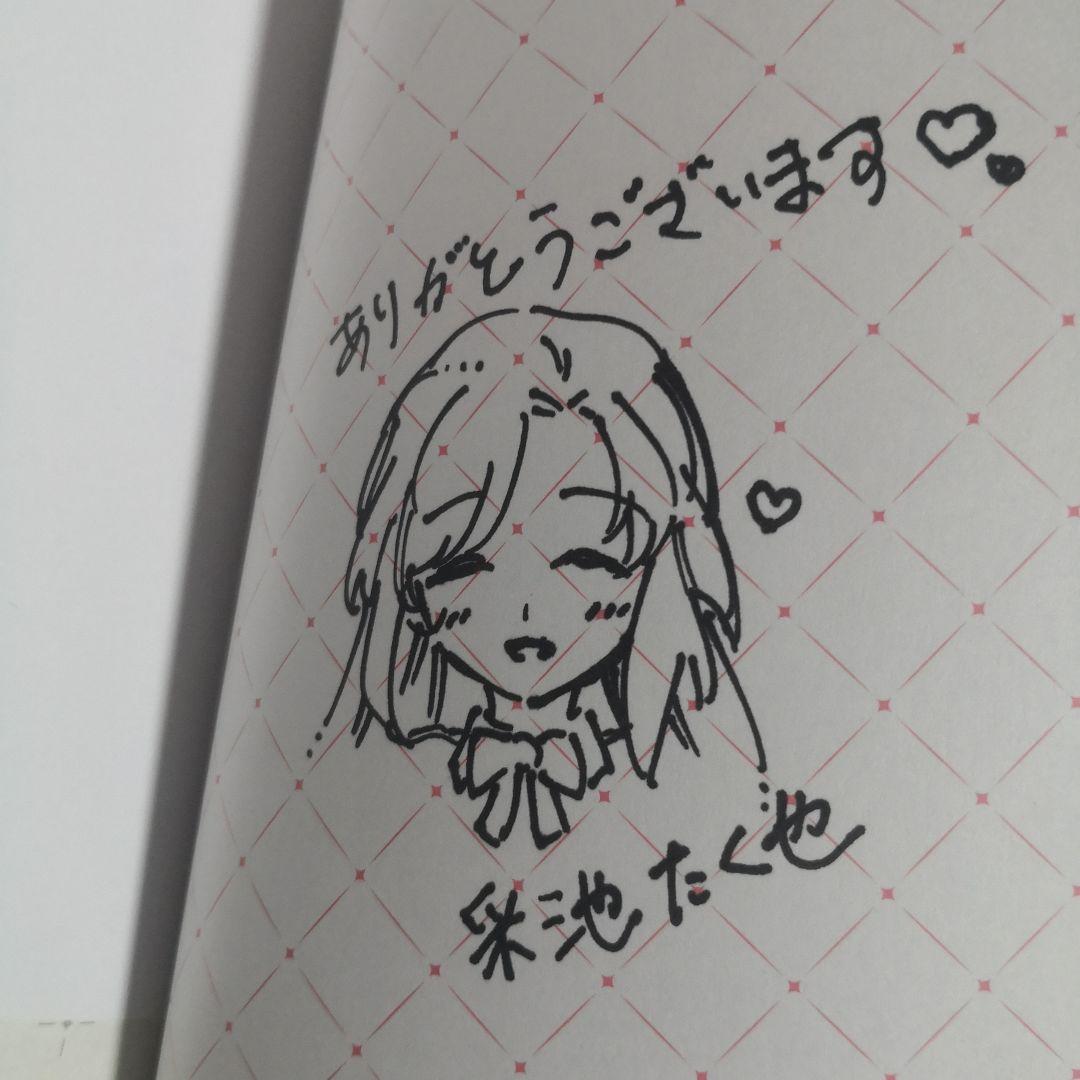 ありがとうございます♡
采池たく也